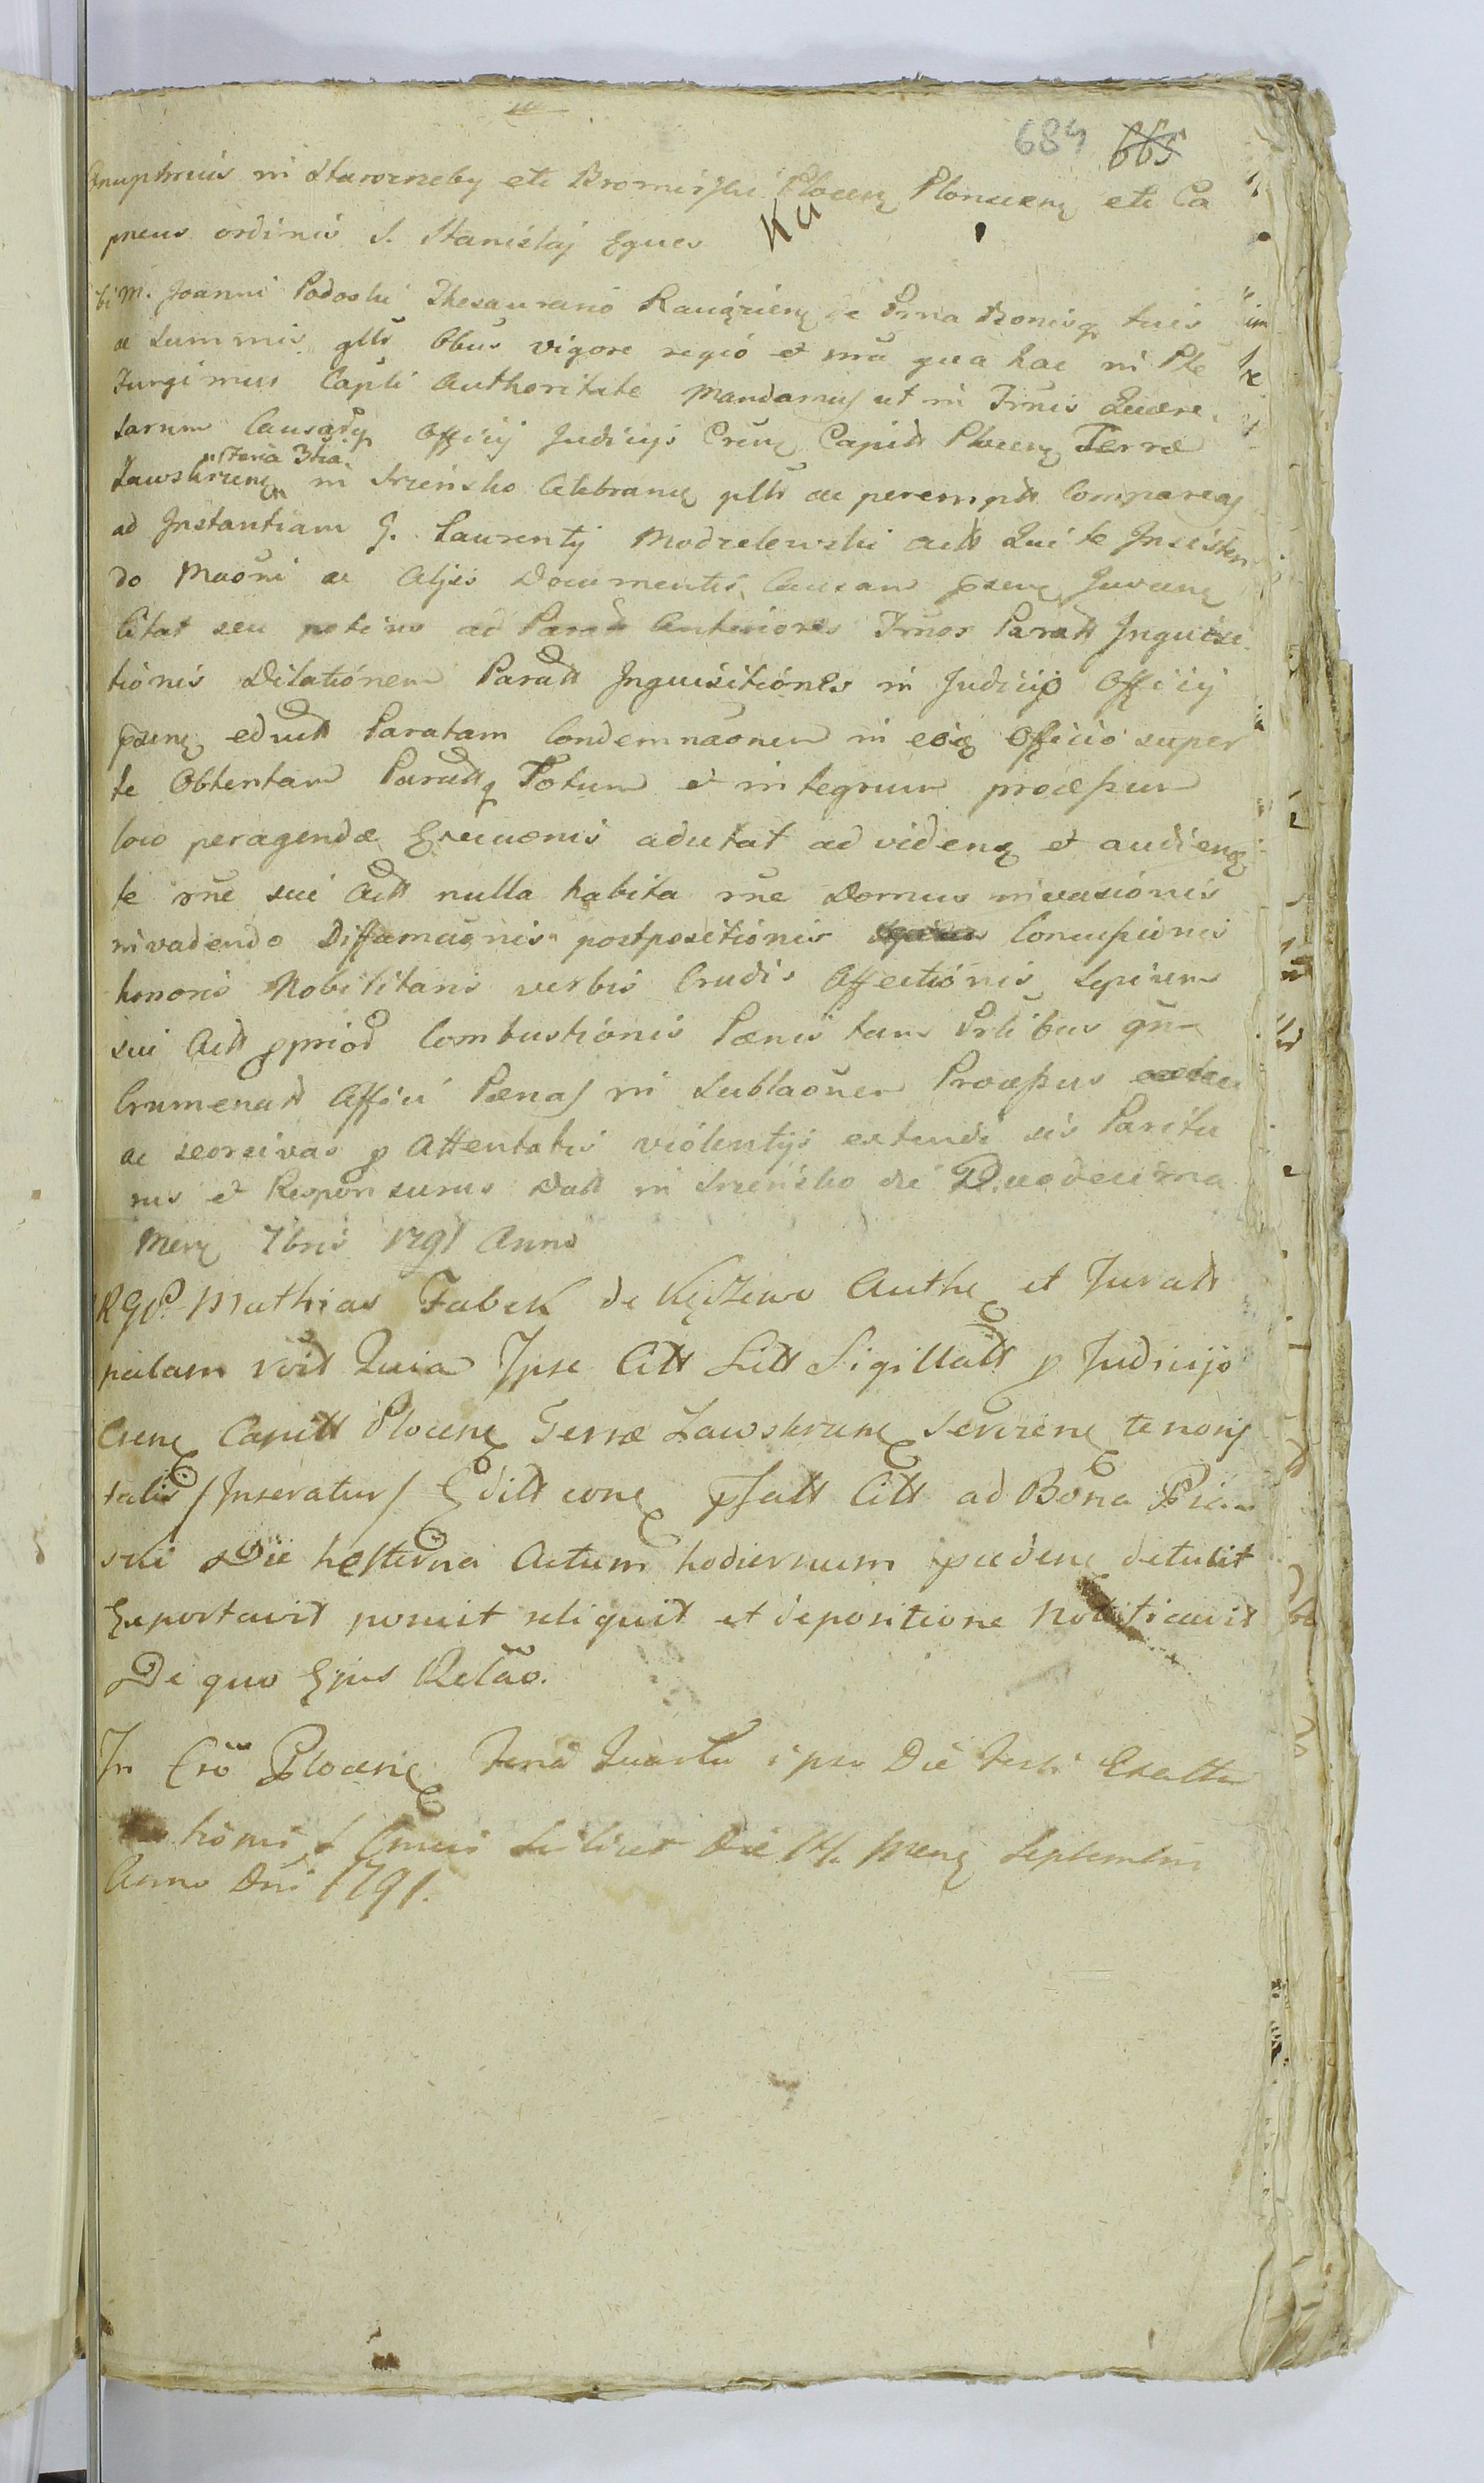 684 665
Onuphrius in Staroreby etc Bromirski Plocen Plonscen etc Ca
pneus ordinis S. Stanislaj Eques
bi M. Joanni Podoski Thesaurario Raciązien de Prna Bonisq tuis
ac summis gllr Obus vigore regio et mra qua hac in Pte
Fungimur Capli Authoritate Mandamus ut in Trnis Quere
larum Causarq Officij Judicijs Cren Capitt Plocen Terræ
Zawskrzen feria 3tia in Srzeńsko Celebran pttr ac perempt Compareas
ad Instantiam G. Laurentij Modzelewski actt Qui te Insisten
do Maoni ac Alijs Documentis Causam psen Juvan
Citat seu potius ad Anteriores Trnos Paratt Inquisi
tionis Dilationem Paratt Inquisitiones in Judicijs Officij
psen eductt Paratam Condemnaonem in eoq Officio super
te Obtentam Parattq Totum et integrum processum
loco peragendæ Execuonis adcitat ad viden et audien
te rne sui Actt nulla habita rne Domus invasionis
invadendo Diffamaonis postpositionis Concussionis
honoris Nobilitaris verbis Crudis Affectionis Sepium
sui Actt ppriod Combustionis Pænis tam Prlibus qu
Crumenatt Affici Pænas in Sublaonem Processus
ac seorsivas p Attentatis violentijs extendi sis Paritu
rus et Responsurus Datt in Srzeńsko die Duodecima
Men 7bris 1791 Anno
RGP. Mathias Fabek de Kęszewo Authe et Juratt
palam roid Quia Ipse Citt Litt Sigillatt p Judicijo
Cren Capitt Plocen Terræ Zawskrzen Srzeren tenoris
talis /Inseratur/ Editt con psatt Citt ad Bona
ski Die hesterna Actum hodiernum pceden detulit
Exportavit posuit reliquit et depositione Notificavit
De quo Ejus Relao.
In Cro Plocen Feria Quarta ipso Die Festi Exalta
tionis S Crucis scilicet Die 14. Men Septembris
Anno Dni 1791.